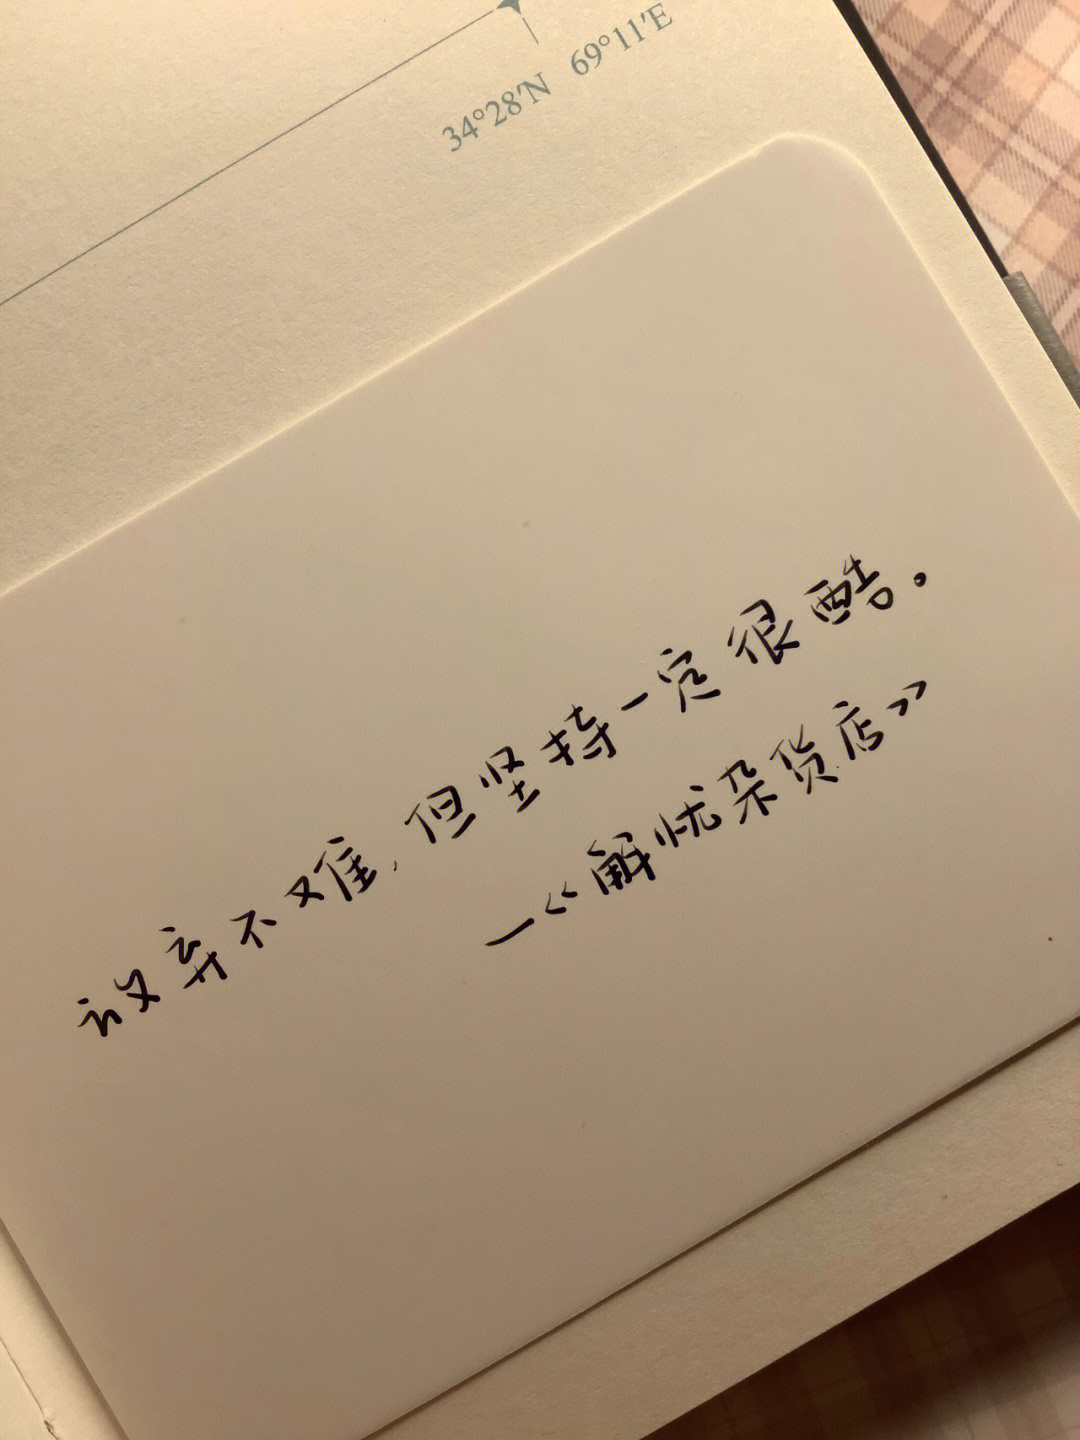 34°28′N 69°11′E
放弃不难,但坚持一定很酷。
—《解忧杂货店》